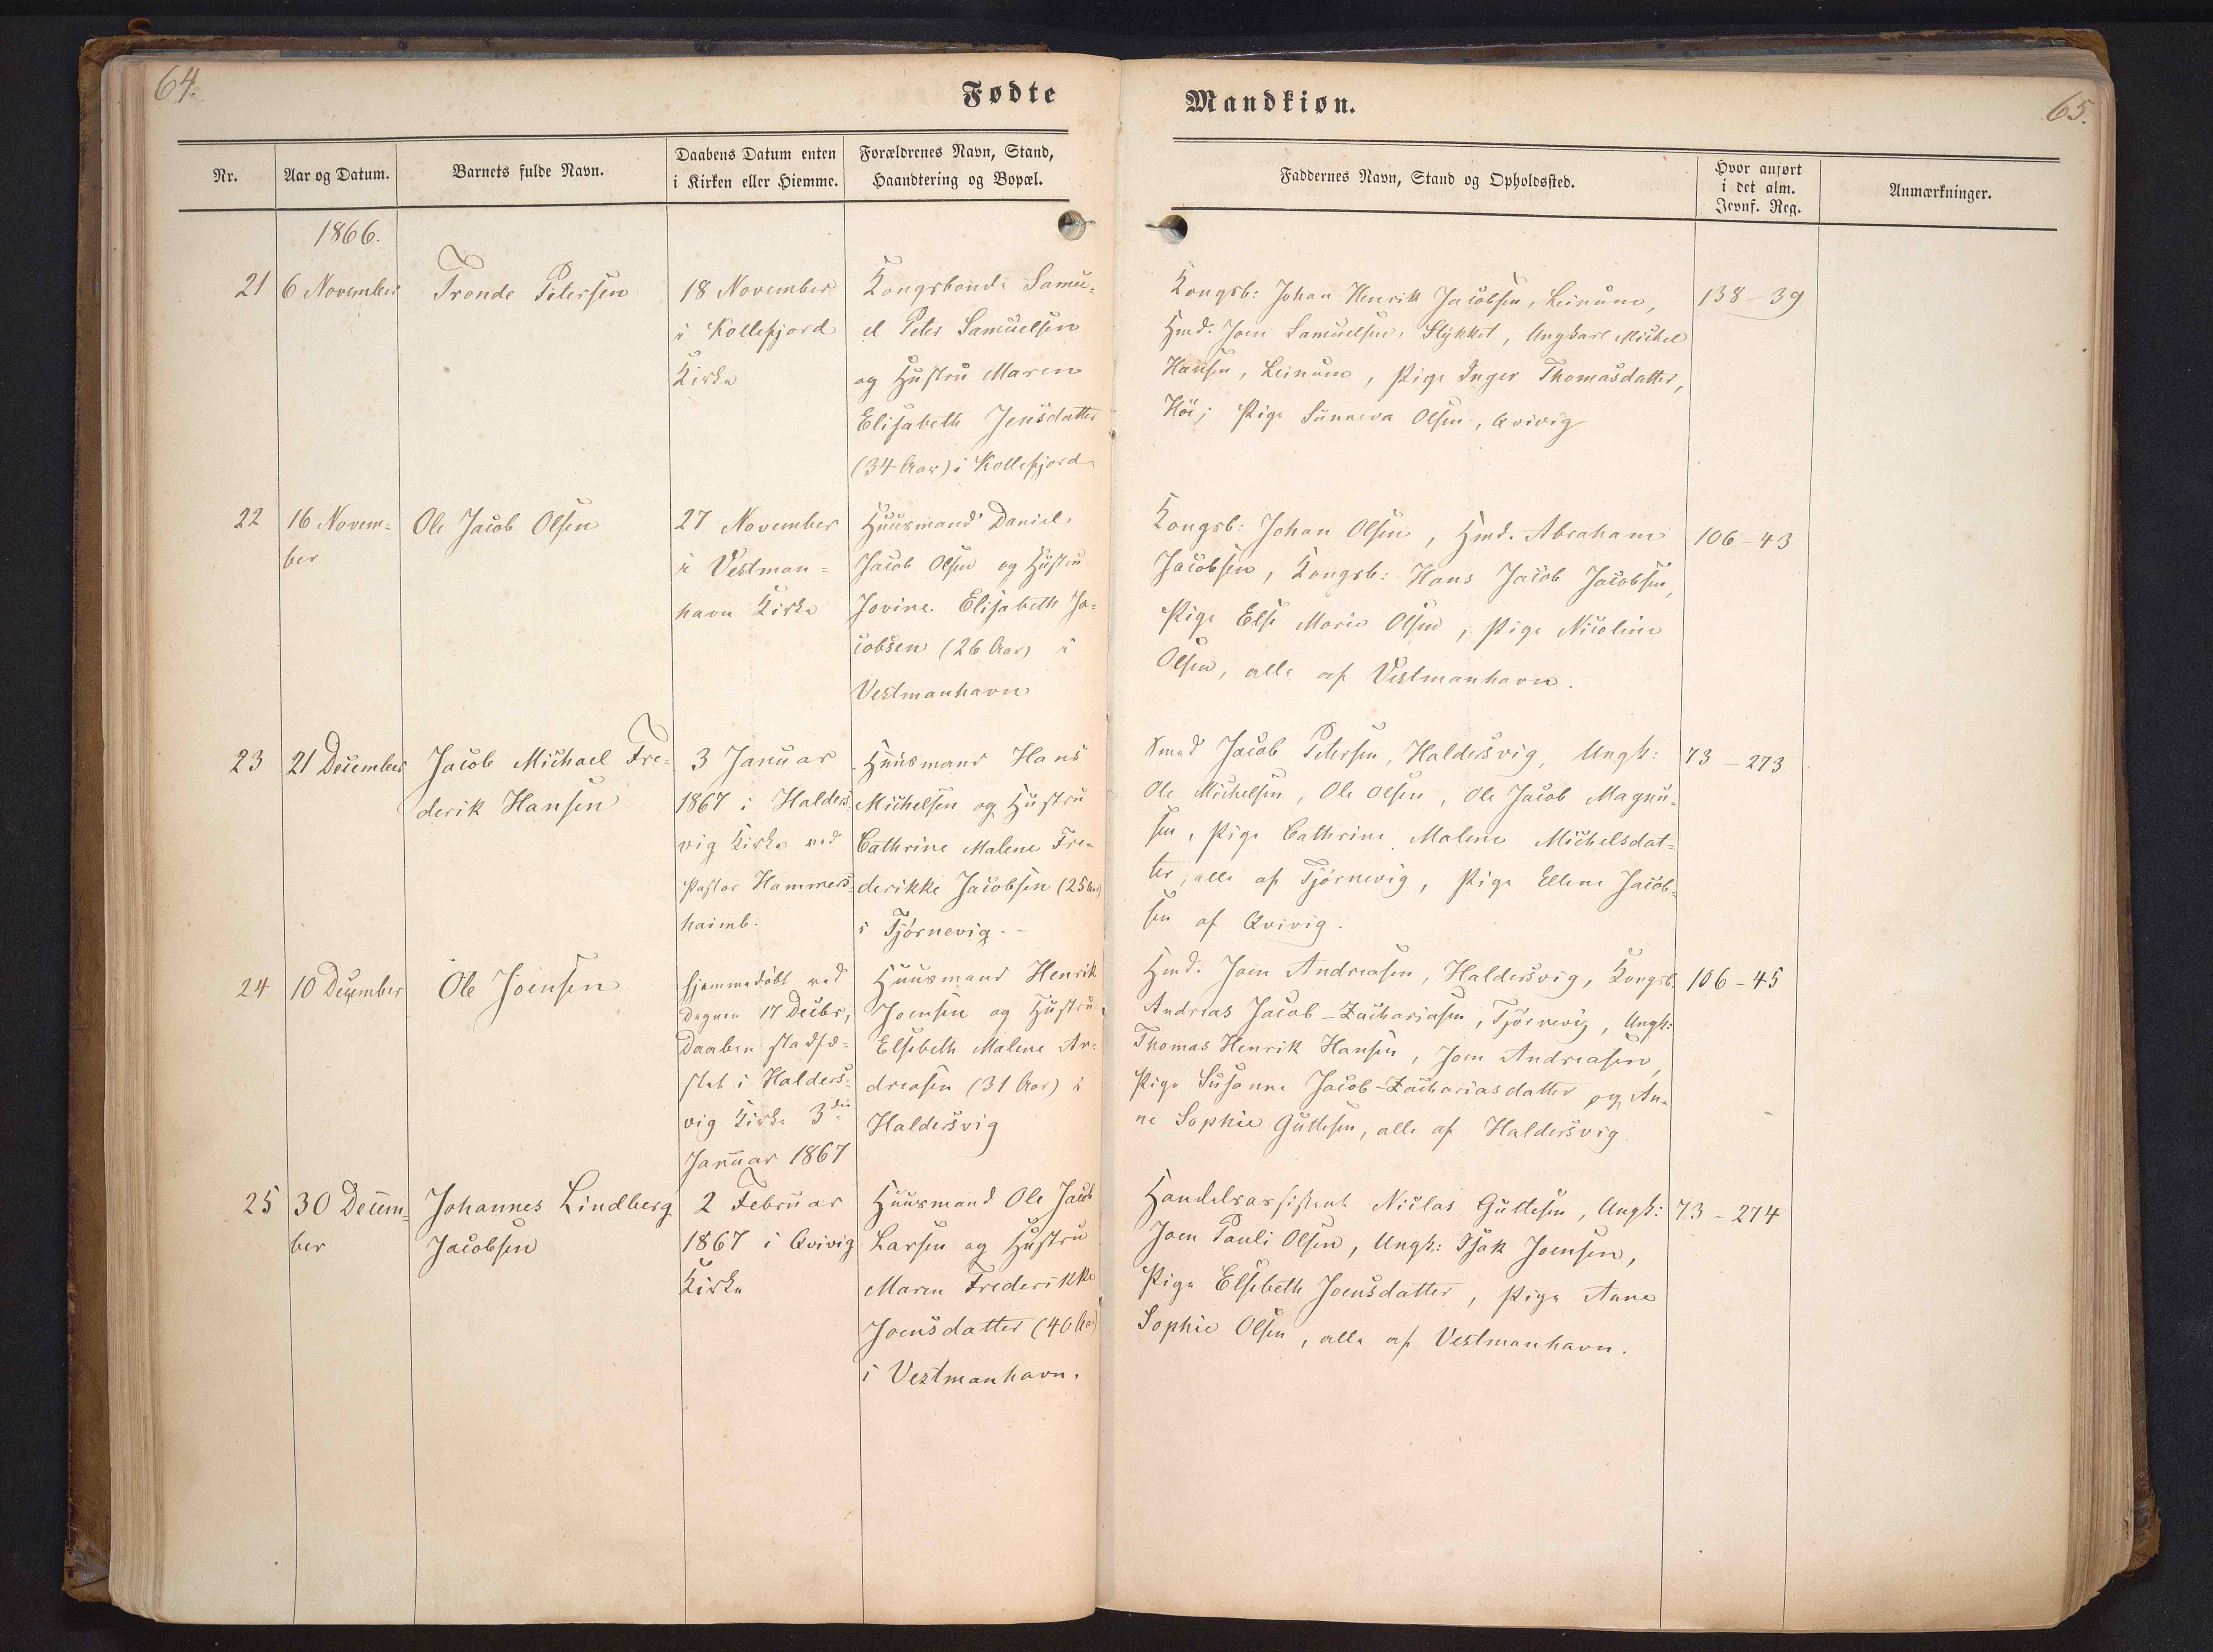 64.
Fødte
Nr.
Aar og Datum.
Barnets fulde Navn.
Daabens Datum enten
i Kirken eller Hiemme.
Forældrenes Navn, Stand,
Haandtering og Bopæl.
1866.
21
6 November
Tronde Petersen
18 November
i Kollefjord
Kirke
Kongsbonde Samu-
el Peter Samuelsen
og Hustru Maren
Elisabeth Jensdatter
(34 Aar) i Kollefjord
22
16 Novem-
ber
Ole Jacob Olsen
27 November
i Vestman-
havn Kirke
Huusmand Daniel
Jacob Olsen og Hustru
Jovine Elisabeth Ja-
cobsen (26 Aar) i
Vestmanhavn
23
21 December
Jacob Michael Fre-
derik Hansen
3 Januar
1867 i Halders-
vig Kirke ved
Pastor Hammers-
haimb.
Huusmand Hans
Michelsen og Hustru
Cathrine Malene Fre-
derikke Jacobsen (25 Aar)
i Tjørnevig.
24
10 December
Ole Joensen
hjemmedøbt ved
Degnen 17 Decbr,
Daaben stadfæ-
stet i Halders-
vig Kirke 3die
Januar 1867
Huusmand Henrik
Joensen og Hustru
Elsebeth Malene An-
dreasen (31 Aar) i
Haldersvig
25
30 Decem-
ber
Johannes Lindberg
Jacobsen
2 Februar
1867 i Qvivig
Kirke
Huusmand Ole Jacob
Larsen og Hustru
Maren Frederikke
Joensdatter (40 Aar)
i Vestmanhavn.
Mandkiøn.
65.
Faddernes Navn, Stand og Opholdssted.
Hvor anført
i det alm.
Jevnf. Reg.
Anmærkninger.
Kongsb: Johan Henrik Jacobsen, Leinum,
Hmd. Joen Samuelsen, Stykket, Ungkarl Michel
Hansen, Leinum, Pige Inger Thomasdatter,
Høi; Pige Sunneva Olsen, Qvivig
138-39
Kongsb: Johan Olsen, Hmd. Abraham
Jacobsen, Kongsb: Hans Jacob Jacobsen,
Pige Else Marie Olsen, Pige Nicoline
Olsen, alle af Vestmanhavn.
106-43
Smed Jacob Petersen, Haldersvig, Ungk:
Ole Michelsen, Ole Olsen, Ole Jacob Magnu-
sen, Pige Cathrine Malene Michelsdat-
ter, alle af Tjørnevig, Pige Ellene Jacob-
sen af Qvivig.
73-273
Hmd. Joen Andreasen, Haldersvig, Kongsb.
Andreas Jacob-Zachariasen, Tjørnevig, Ungk:
Thomas Henrik Hansen, Joen Andreasen,
Pige Susanne Jacob-Zachariasdatter og An-
ne Sophie Guttesen, alle af Haldersvig.
106-45
Handelsassistent Niclas Guttesen, Ungk:
Joen Pauli Olsen, Ungk: Isak Joensen,
Pige Elsebeth Joensdatter, Pige Anne
Sophie Olsen, alle af Vestmanhavn.
73-274